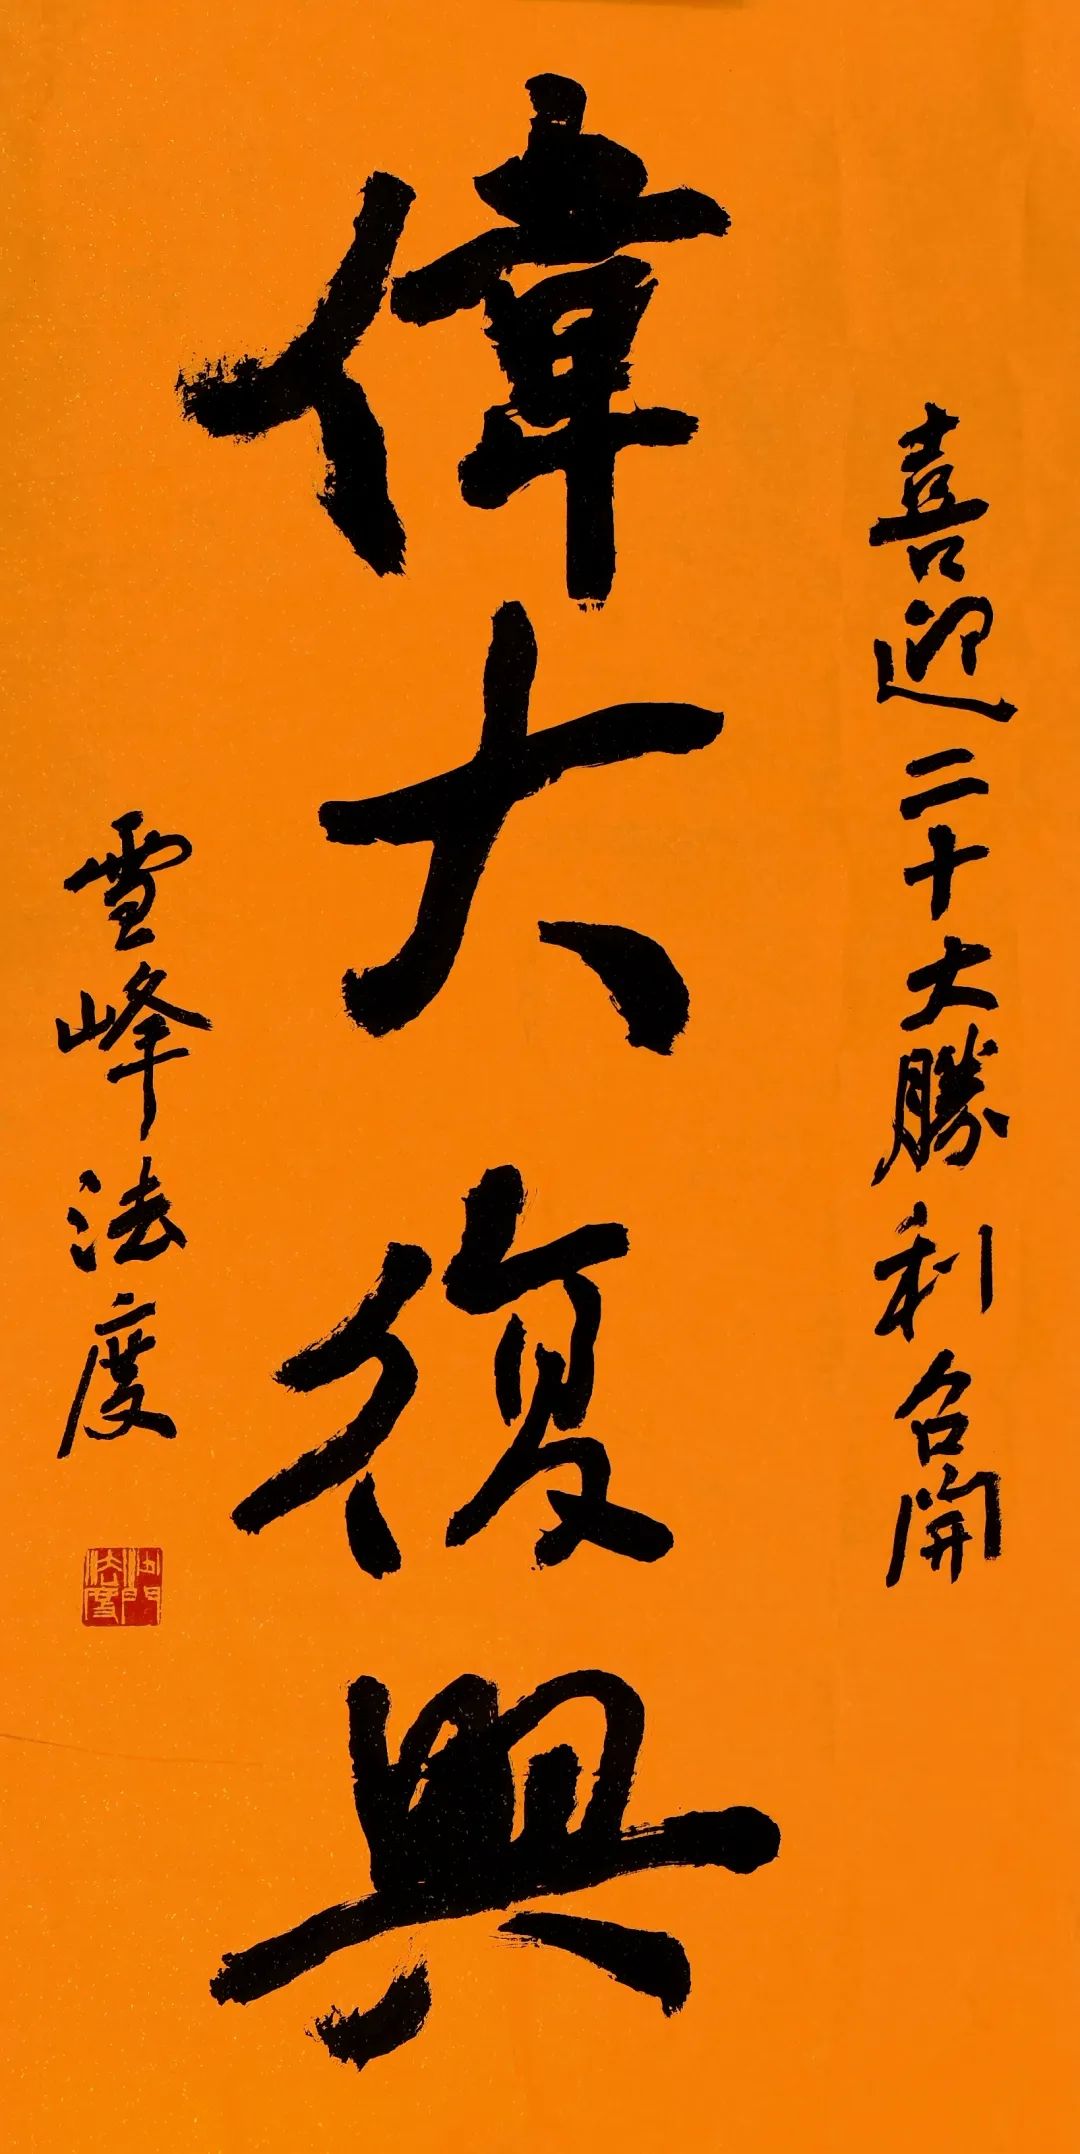 喜迎二十大勝利召開
偉大復興
雪峰法度
沙門法度